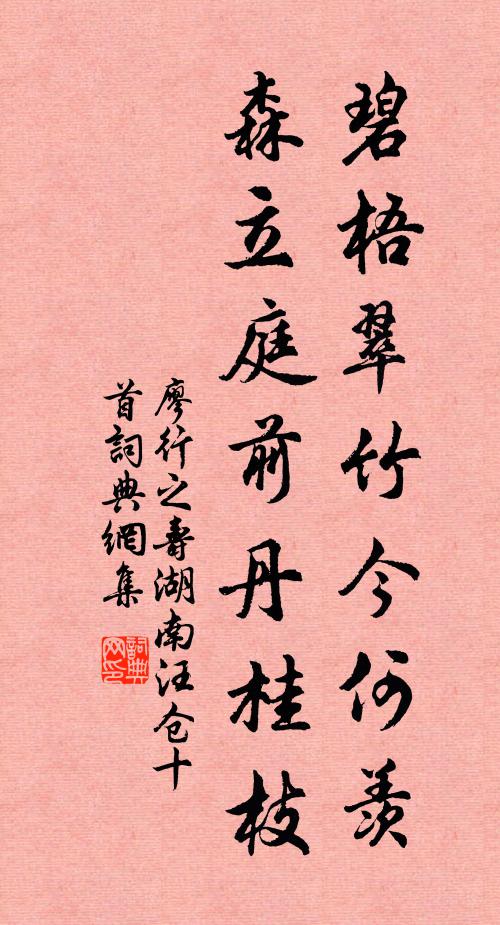 碧梧翠竹今何羨
森立庭前丹桂枝
廖行之壽湖南汪仓十
首詞典網集
詞典网印